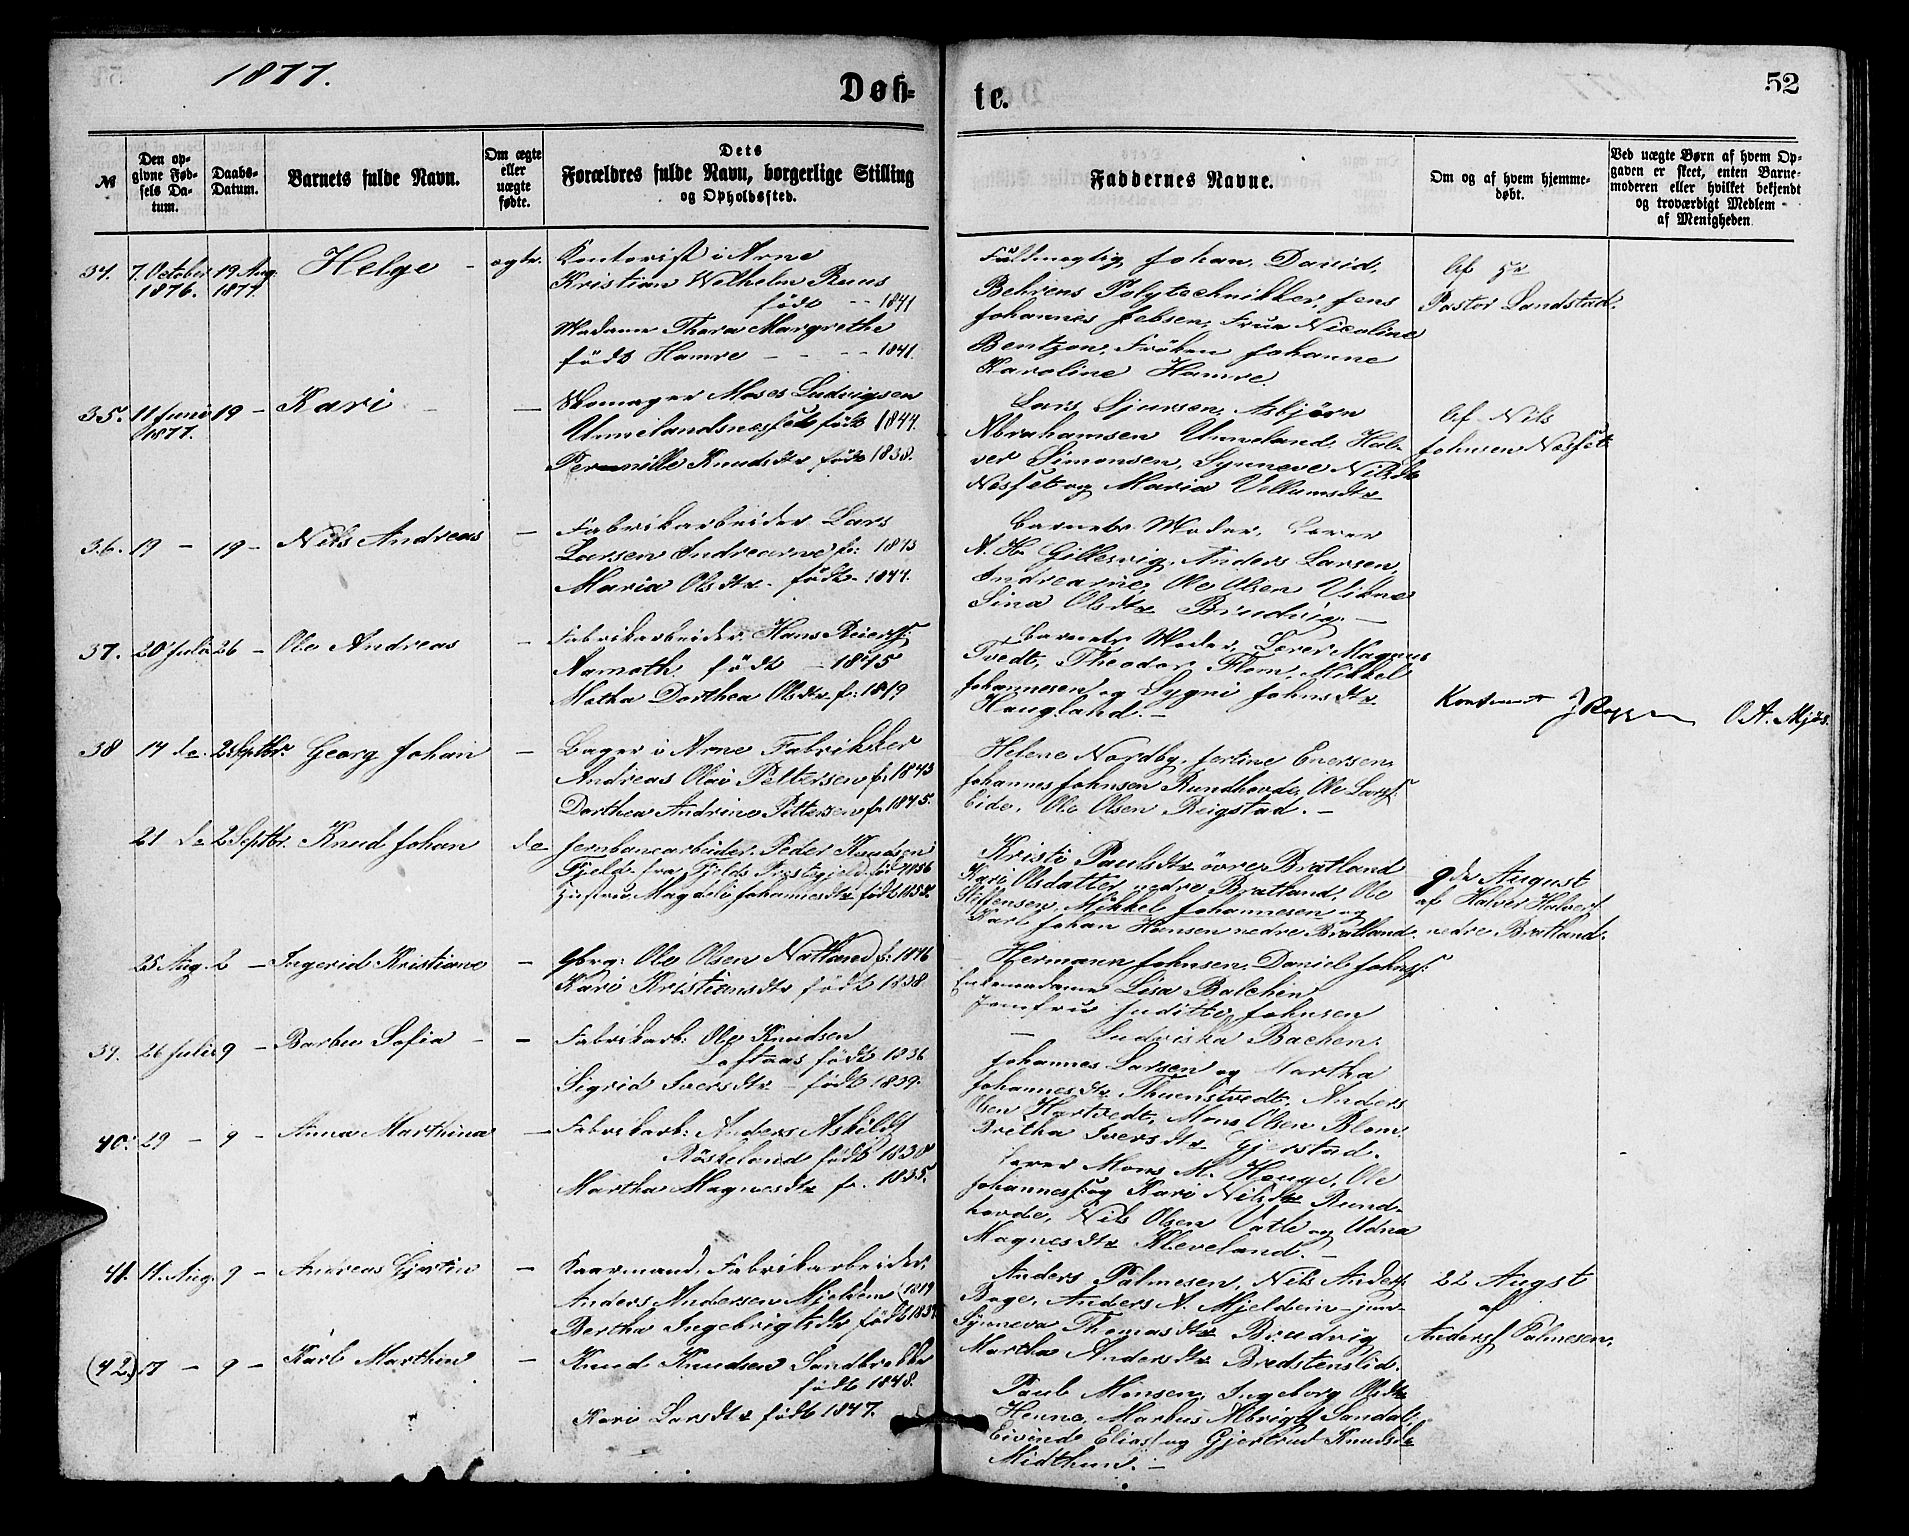 1877.
Døb-
te.
52
№
Den op-
givne Fød-
sels Da-
tum.
Daabs-
Datum.
Barnets fulde Navn.
Om ægte
eller
uægte
fødte.
Dets
Forældres fulde Navn, borgerlige Stilling
og Opholdssted.
Faddernes Navne.
Om og af hvem hjemme-
døbt.
Ved uægte Børn af hvem Op-
gaven er skeet, enten Barne-
moderen eller hvilket bekjendt
og troværdigt Medlem
af Menigheden.
34. 7. October 19 Aug. Helge - ægte. Kontorist i Arne
1876. 1877. Kristian Wilhelm Ruus
født - - 1841
Madame Thora Margrethe
født Hamre - - - - 1841.
Fuldmegtig Johan David
Behrens Polytechnikker, Jens
Johannes Jebsen, Frue Nicoline
Bentzon, Frøken Johanne
Karoline Hamre.
Af
Pastor Landstad.
35. 11 Juni 19 - Kari - Skomager Moses Ludvigsen
1877. Unnelandsnesset født 1844.
Pernille Knudsdtr født 1838.
Lars Sjursen, Asbjørn
Abrahamsen Unneland, Hal-
ver Simonsen, Synneve Nilsdtr
Nesset og Maria Vellumsdtr
Af Nils
Johnsen Nesset
36. 19 - 19 - Nils Andreas - Fabrikarbeider Lars
Larsen Indrearne f: 1843
Maria Olsdtr. født 1844.
Barnets Moder, Lærer
A. H. Gillesvig, Anders Larsen
Indrearne, Ole Olsen Vikne
Sina Olsdtr Brudvig. -
37. 20 Juli 26 - Ole Andreas - Fabrikarbeider Hans Reiers:
født - 1845
Dorthea Olsdtr f: 1849
Barnets Moder, Lærer Magnus
Tvedt, Theodor Flom, Mikkel
Johannesen og Sygni Johnsdtr
Haugland. -
O A. Mjøs.
38 14 de. 2 Septbr. Georg Johan - Bager i Arne Fabrikker
Andreas Olai Pettersen f. 1843
Dorthea Andrine Pettersen f. 1845.
Helene Nordby, Jertine Eversen,
Johannes Johnsen Rundhovde, Ole Lars:
Eide, Ole Olsen Reigstad. -
21 de 2 Septbr. Knud Johan de Jernbanearbeider Peder Knudsen
Fjeld fra Fjelds Præstegjeld født 1856
Hustru Magdeli Johannesdtr født 1855.
Kristi Paulsdtr øvre Bratland
Kari Olsdatter nedre Bratland, Ole
Steffensen, Mikkel Johannesen og
Karl Johan Hansen nedre Bratland.
9de August
af Halver Halvers:
nedre Bratland.
25 Aug. 2 - Ingerid Kristiane - Gbrg: Ole Olsen Natland f: 1846
Kari Kristiansdtr født 1838.
Hermann Johnsen, Daniel Johns:
Enkemadame Lisa Balchen
Jomfru Juditte Johnsen
- Ludviska Bachen.
39. 26 Juli 9 - Barbu Sofia - - Fabrikarb: Ole Knudsen
Loftaas født 1836
Sigrid Iversdtr - født 1839.
Johannes Larsen og Martha
Johannesdtr Thuenstvedt, Anders
Olsen Hartvedt, Mons Olsen Blom,
Bretha Iversdtr Gjerstad.
40. 29 - 9 - Anna Marthina - Fabrikarb: Anders Askilds:
Røskeland født 1830
Martha Magnesdtr f. 1835.
Lærer Mons M. Hauge, Ole
Johannes: og Kari Nilsdtr Rund-
hovde, Nils Olsen Vatle og Udna
Magnesdtr Kleveland. -
41. 11. Aug. 9 - Andreas Gjertin - Kaarmand, Fabrikarbeider,
Anders Andersen Mjeldem (1819
Bertha Ingebrigtsdtr født 1837
Anders Palmesen, Nils Anders:
Boge, Anders A. Mjeldem jun-
Synneva Thomasdtr Brudvig
Martha Andersdtr Bredstenslid.
22 Augst
af
Anders Palmesen.
(42.) 17 - 9 - Karl Marthin - Knud Knudsen Sandbrekke
født 1848.
Kari Larsdtr født 1847.
Paul Monsen, Ingeborg Olsdtr
Henne, Markus Albrigts: Sandal,
Eivind Elias: og Gjertrud Knudsdtr
Midthun. -